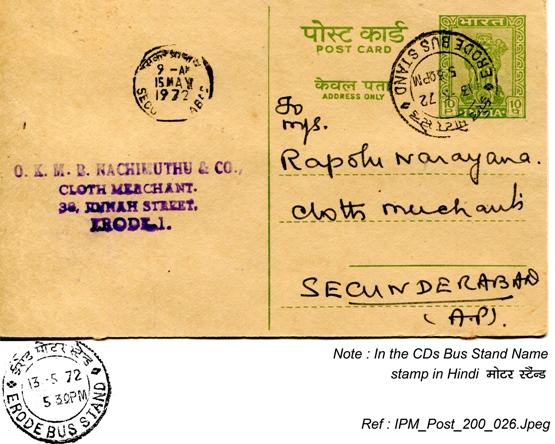 पोस्ट कार्ड
POST CARD
केवल पता
ADDRESS ONLY
भारत
10 प
10 P
INDIA
ERODE BUS STAND
5 30PM
72
9 - AM
15 MAY
1972
To
M/s.
Rapolu Narayana.
Cloth Merchants
SECUNDERABAD
(A.P).
O. K. M. R. NACHIMUTHU & CO.,
CLOTH MERCHANT.
ERODE-1.
ईरोड मोटर स्टैन्ड
13 -5 72
5 30PM
ERODE BUS STAND
Note : In the CDs Bus Stand Name
stamp in Hindi मोटर स्टैन्ड
Ref : IPM_Post_200_026.Jpeg